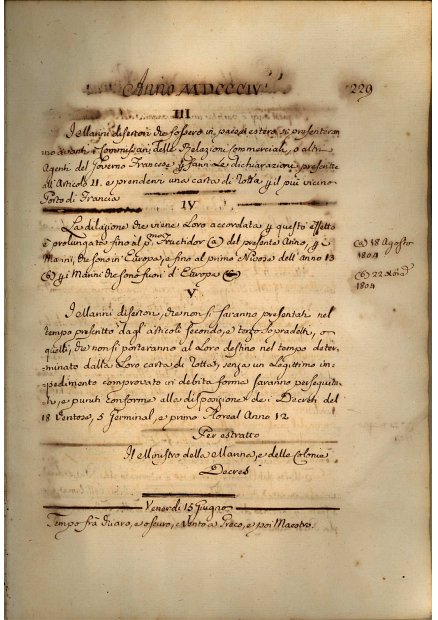 Anno MDCCCIV
229
III
I Marinri disertori che fossero in paese estero si presenteran
no avanti i Commissari delle Relazioni Commerciali, o altri
Agenti del Governo Francese p farvi Le dichiarazioni prescritte
all'Articolo II. e prendervi una carta di Rotta p il più vicino
Porto di Francia
IV
La dilazione che viene Loro accordata p questo effetto
è prolungata fino al pmo Fructidor (a) del presente Anno, p i
Marinri, che sono in Europa, e fino al primo Nivose dell'anno 13
(b) p i Marinri che sono fuori d'Europa
(a) 18 Agosto
1804
(b) 22
1804
V
I Marinri disertori, che non si saranno presentati nel
tempo prescritto dagl'articoli secondo, e terzo sopradetti, o
quelli, che non si porteranno al Loro destino nel tempo deter-
minato dalla Loro carta di Rotta, senza un Legittimo im
pedimento comprovato in debita forma saranno persegui
ti, e puniti conforme alla disposizione dei Decreti del
18 Ventose, 5 Germinal, e primo Floreal Anno 12
Per estratto
Il Ministro della Marina, e delle Colonie
Decres
Venerdi 15 Giugno
Tempo frà chiaro, e oscuro, e Vento a Greco, e poi Maestro.